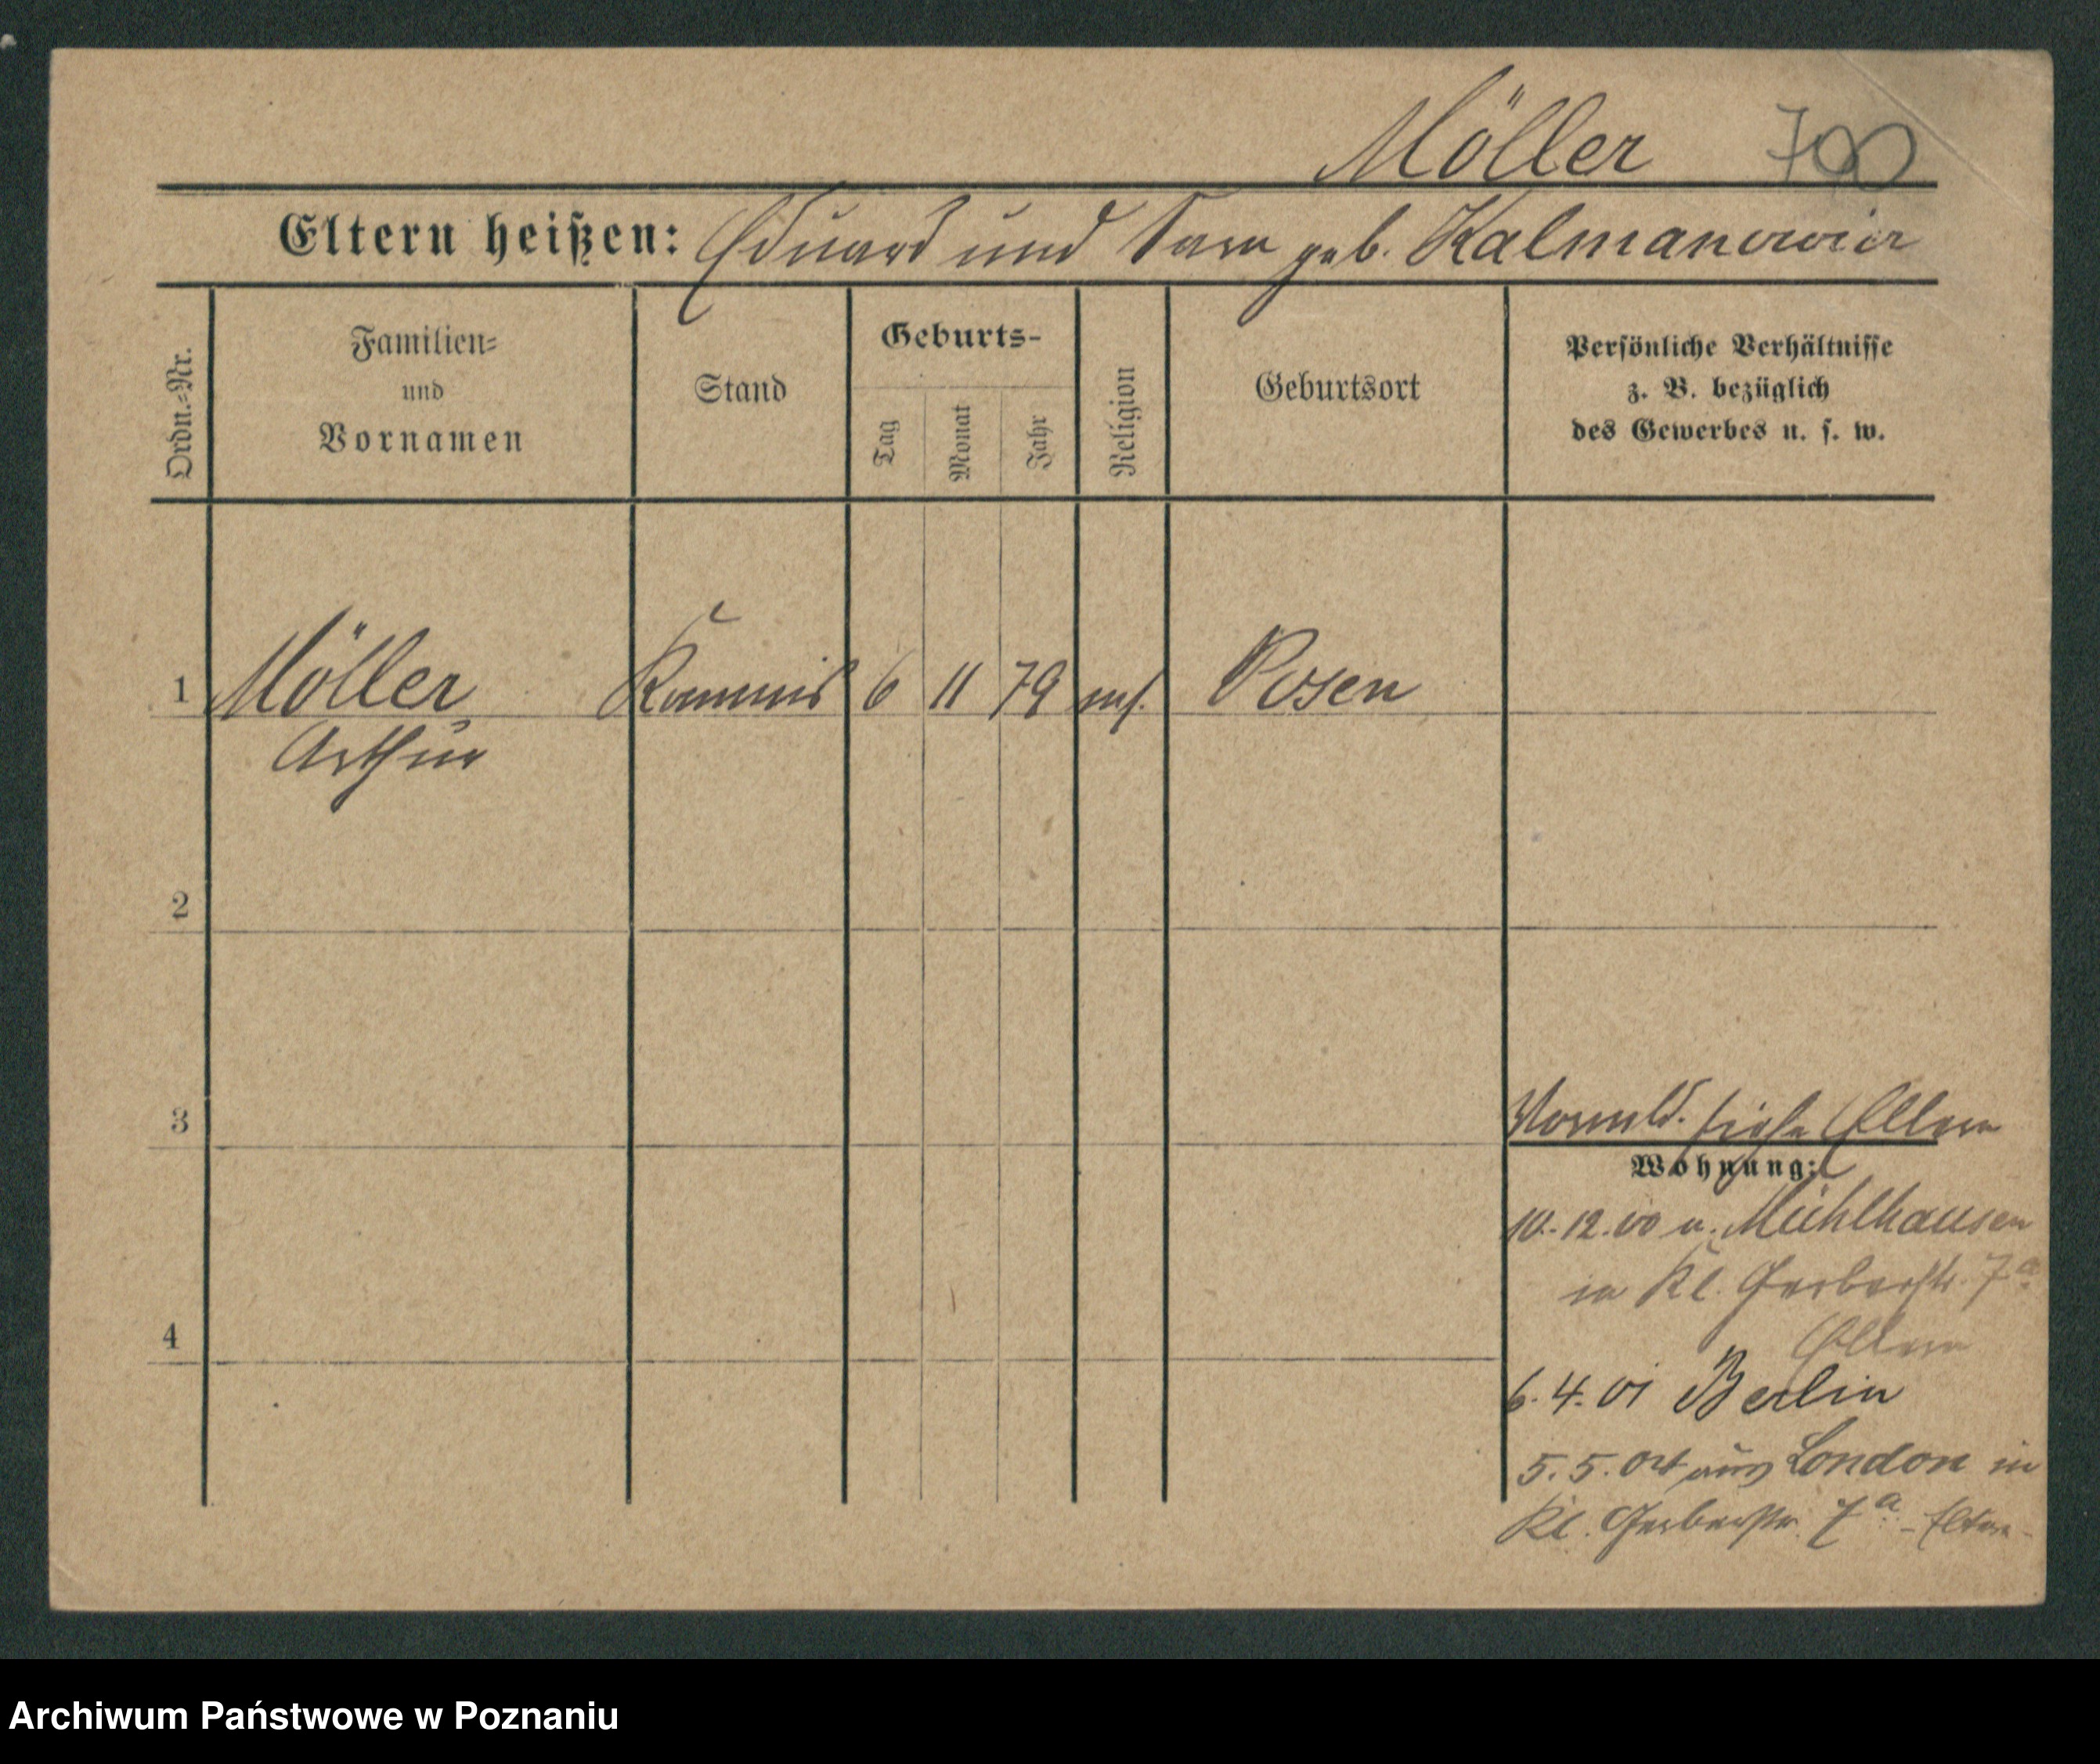 Möller 700
Eltern heißen: Eduard und Sara geb. Kalmanowicz
Ordn.-Nr.
Familien-
und
Vornamen
Stand
Geburts-
Tag
Monat
Jahr
Religion
Geburtsort
Persönliche Verhältnisse
z. B. bezüglich
des Gewerbes u. s. w.
1 Möller Kommis 6 11 79 Posen
Arthur
2
3
siehe Eltern
Wohnung:
10.12.00 a. Mühlhausen
in Kl. Gerberstr. 7a
Eltern
4
6.4.01 Berlin
5.5.04 aus London in
Kl. Gerberstr. 7a - Eltern -
Archiwum Państwowe w Poznaniu